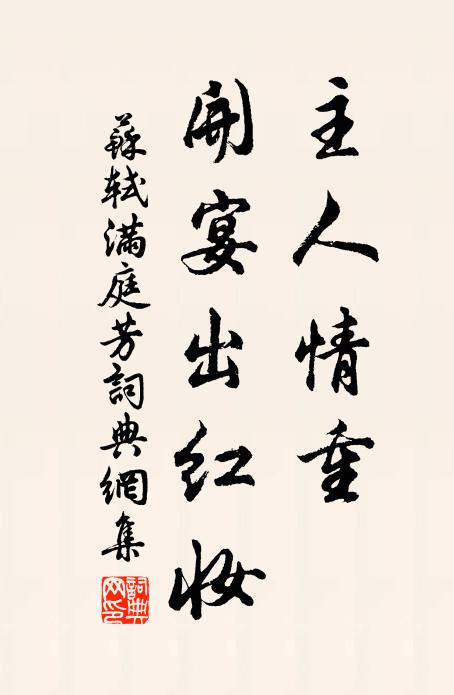 主人情重
開宴出紅妝
蘇軾滿庭芳詞典網集
詞典網印